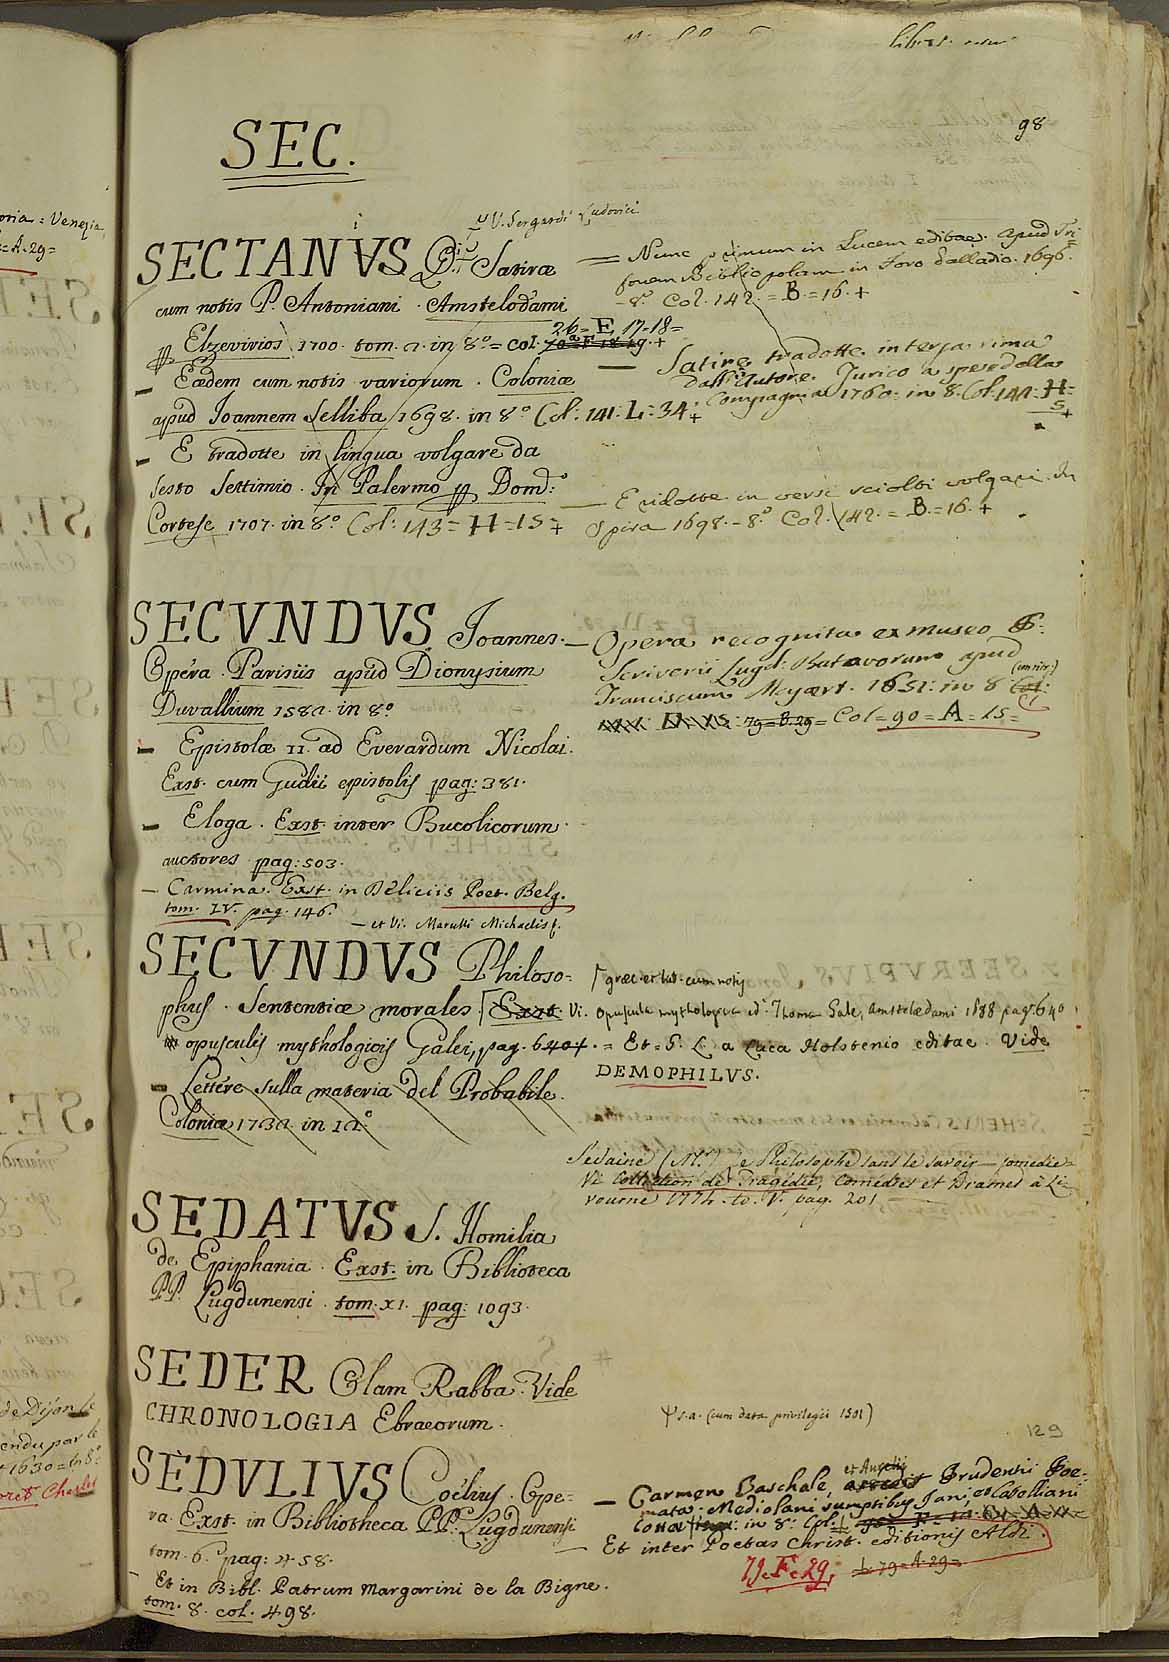 98
SEC.
V. Sergardi Ludovici
SECTANVS Q. Satiræ
cum notis P. Antoniani. Amstelodami
Elzevirios 1700. tom. 2. in 8.° = Col. 26 = E 17-18 =
Eædem cum notis variorum. Coloniæ
apud Joannem Selliba 1698. in 8.° Col: 141: L: 34+
E tradotte in lingua volgare da
Sesto Settimio. In Palermo Dom.°
Cortese 1707. in 8.° Col: 143 = H = 15 +
Nunc primum in Lucem editae. apud Tri
fonem Bibliopolam in Foro Palladio. 1696.
8.° Col. 142. = B. = 16. +
Satire tradotte in terza rima
dall'Autore. Zurico a spese della
Compagnia 1760. in 8. Col. 144. H =
5 +
E ridotte in versi sciolti volgari. In
Spira 1698. - 8.° Col. 142. = B. = 16. +
SECVNDVS Joannes.
Opera. Parisiis apud Dionysium
Duvallium 1582. in 8.°
Epistolæ 11. ad Everardum Nicolai.
Exst. cum Gudii epistolis pag: 381.
Eloga. Exst. inter Bucolicorum
auctores pag: 503.
Carmina. Exst. in Deliciis Poet. Belg.
tom. IV. pag. 146.
et Vi. Marulli Michaelis f.
Opera recognita ex museo P:
Scriverii Lugd: Batavorum apud
Franciscum Moyært. 1651: in 8
79 = B. 29 = Col = 90 = A = 15 =
SECVNDVS Philoso=
phus. Sententiæ morales [Exst. Vi.
opusculis mythologicis Galei, pag. 640+.
Lettere sulla materia del Probabile.
Coloniæ 1732 in 12.°
græc. et lat. cum notis
opuscula mythologica ed. Thoma Gale, Amstelædami 1688 pag. 640
= Et = S. L. a Luca Holstenio editae. Vide
DEMOPHILVS.
Sedaine (Mr.) Le Philosophe sans le savoir - Comedie =
Vi. Collection de Tragédies, Comédies et Drames à Li-
vourne 1774. to. V. pag. 201
SEDATVS S. Homilia
de Epiphania. Exst. in Biblioteca
PP. Lugdunensi. tom. XI. pag: 1093.
SEDER Olam Rabba. Vide
CHRONOLOGIA Ebraeorum.
SEDVLIVS Coelius. Ope=
ra. Exst. in Bibliotheca PP. Lugdunensi
tom. 6. pag: 458.
Et in Bibl. Patrum Margarini de la Bigne.
tom. 8. col. 498.
s.a. (cum data privilegii 1501)
129
Carmen Paschale, et Aurelii Prudentii Poe-
mata. Mediolani sumptibus Jani, et Catelliani
Cotta in 8.° Col.
Et inter Poetas Christ. editionis Aldi.
79. F. 29. L. 79 = A. 29 =